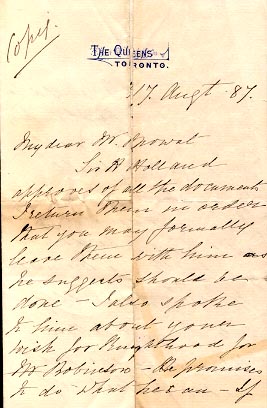 Copy.
THE QUEENS
TORONTO.
17. Augt. 87.
My dear Mr. Mowat
Sir H Holland
approves of all the documents
I return them in order
that you may formally
leave them with him as
he suggests should be
done – I also spoke
to him about your
wish for Knighthood for
Mr Robinson – He promises
to do what he can – If